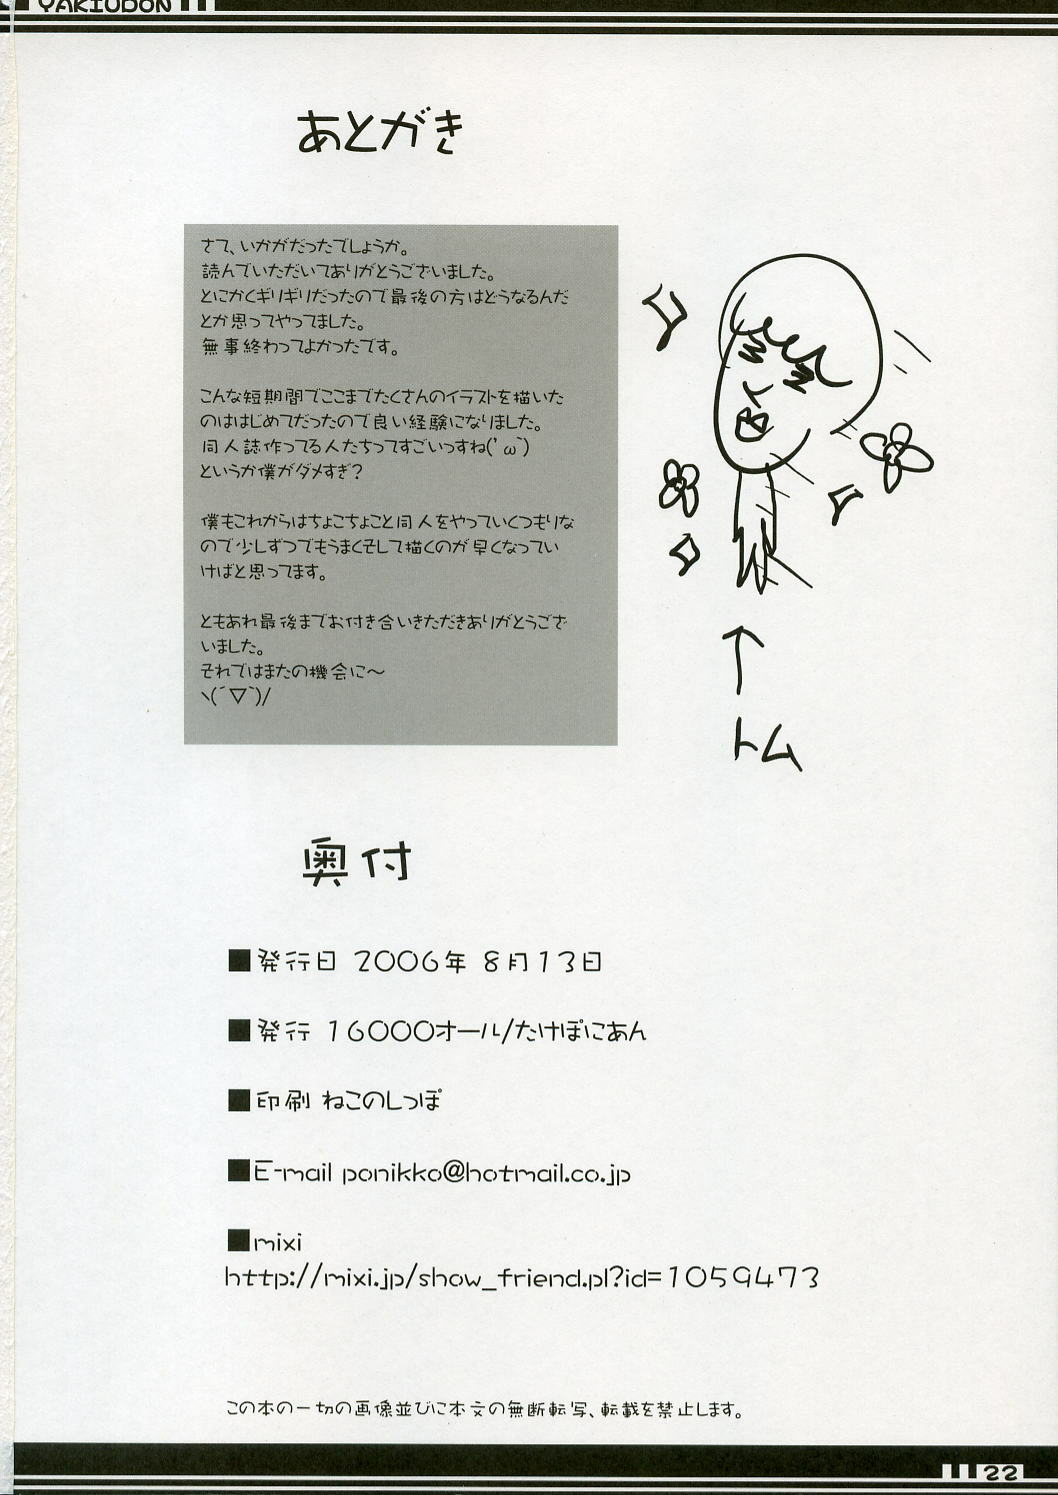 YAKIUDON
あとがき
さて、いかがだったでしょうか。
読んでいただいてありがとうございました。
とにかくギリギリだったので最後の方はどうなるんだ
とか思ってやってました。
無事終わってよかったです。
こんな短期間でここまでたくさんのイラストを描いた
のははじめてだったので良い経験になりました。
同人誌作ってる人たちってすごいっすね(’ω`)
というか僕がダメすぎ?
僕もこれからはちょこちょこと同人をやっていくつもりな
ので少しずつでもうまくそして描くのが早くなってい
けばと思ってます。
ともあれ最後までお付き合いきただきありがとうござ
いました。
それではまたの機会に～
ヽ(´▽`)/
↑
トム
奥付
■発行日 2006年 8月13日
■発行 16000オール/たけぽにあん
■印刷 ねこのしっぽ
■E-mail ponikko@hotmail.co.jp
■mixi
http://mixi.jp/show_friend.pl?id=1059473
この本の一切の画像並びに本文の無断転写、転載を禁止します。
22